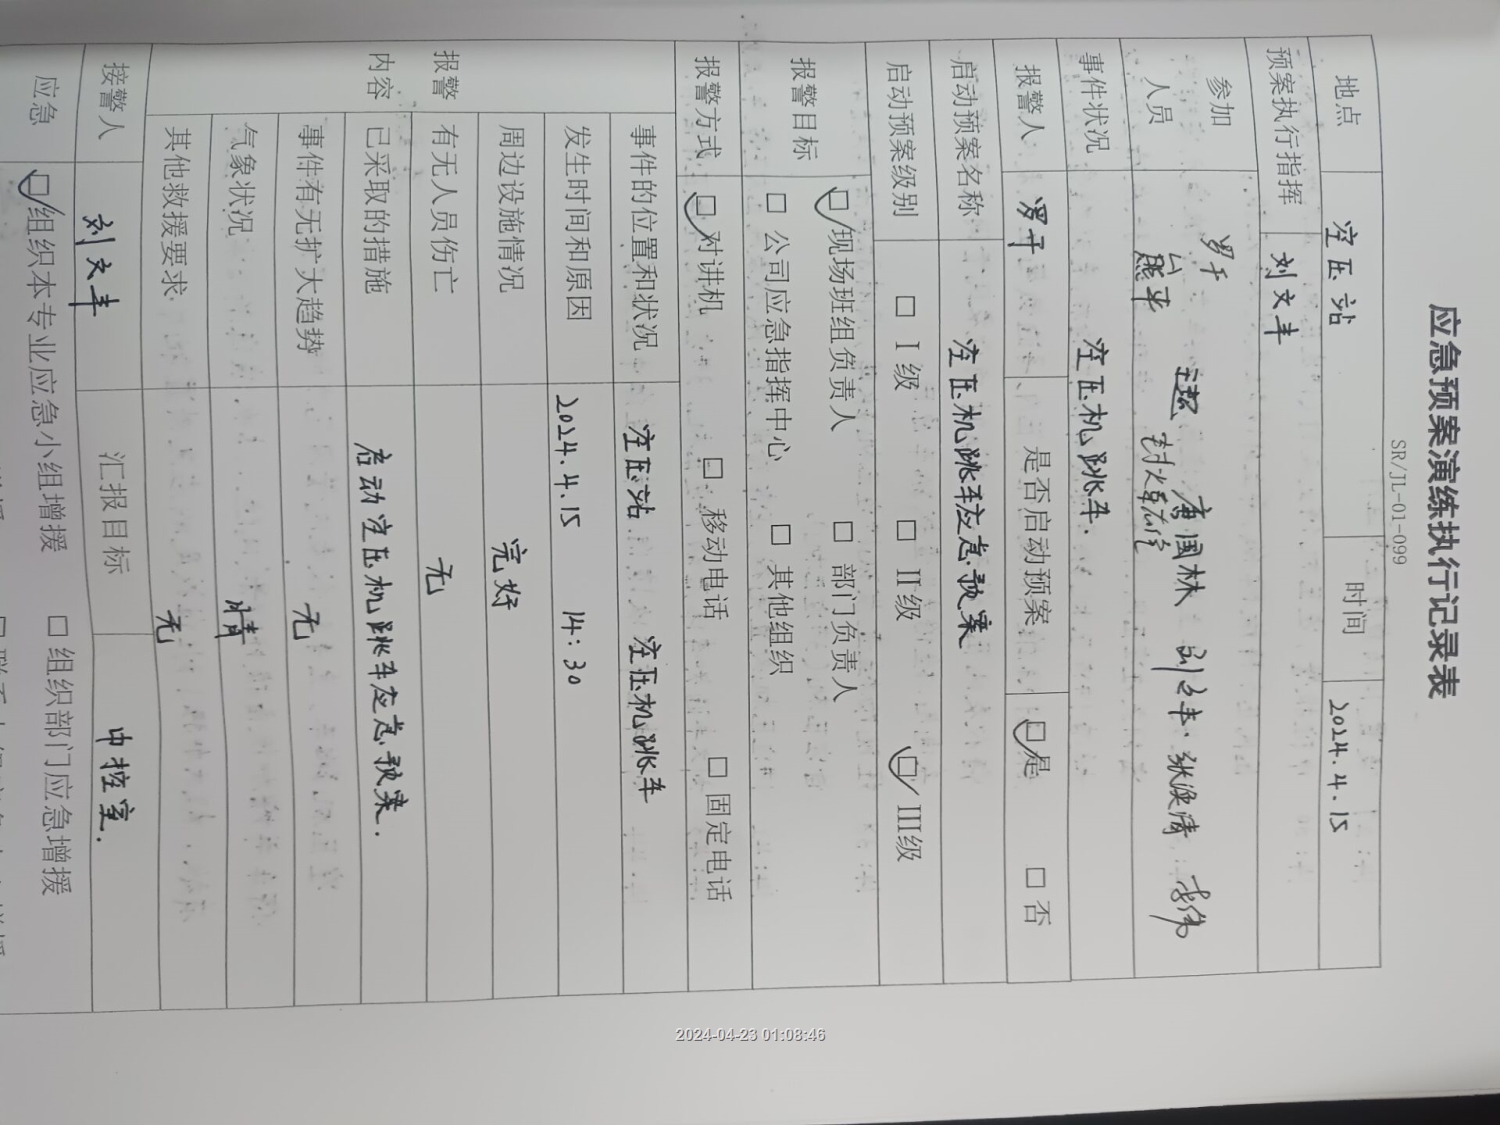 应急预案演练执行记录表
SR/JL-01-099
地点 空压站 时间 2024.4.15
预案执行指挥 刘文丰
参加人员 罗千 熊平 唐国林 刘文丰. 张涣清 李伟
事件状况 空压机跳车.
报警人 罗千 是否启动预案 ☑是 □否
启动预案名称 空压机跳车应急预案
启动预案级别 □ I级 □ II级 ☑ III级
报警目标 ☑现场班组负责人 □ 部门负责人
□ 公司应急指挥中心 □ 其他组织
报警方式 ☑对讲机 □ 移动电话 □ 固定电话
报警内容
事件的位置和状况 空压站 空压机跳车
发生时间和原因 2024.4.15 14:30
周边设施情况 完好
有无人员伤亡 无
已采取的措施 启动空压机跳车应急预案.
事件有无扩大趋势 无
气象状况 晴
其他救援要求 无
接警人 刘文丰 汇报目标 中控室.
应急 ☑组织本专业应急小组增援 □ 组织部门应急增援
2024-04-23 01:08:46